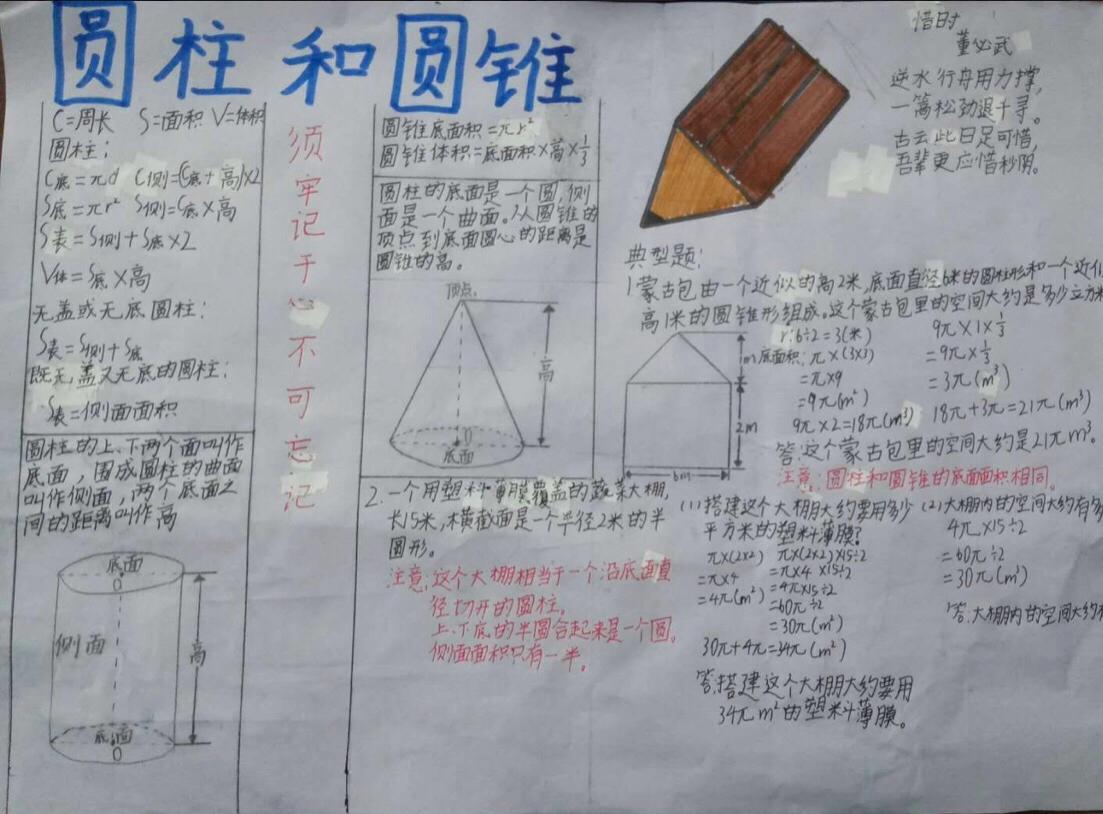 圆柱和圆锥
C=周长 S=面积 V=体积
圆柱：
C底=πd C侧=(C底+高)×2
S底=πr² S侧=C底×高
S表=S侧+S底×2
V体=S底×高
无盖或无底圆柱：
S表=S侧+S底
既无盖又无底的圆柱：
S表=侧面面积
圆柱的上、下两个面叫作
底面，围成圆柱的曲面
叫作侧面，两个底面之
间的距离叫作高
底面
O
侧面
高
底面
O
须牢记于心不可忘记
圆锥底面积=πr²
圆锥体积=底面积×高×1/3
圆柱的底面是一个圆，侧
面是一个曲面。从圆锥的
顶点到底面圆心的距离是
圆锥的高。
顶点
高
O
底面
惜时
董必武
逆水行舟用力撑，
一篙松劲退千寻。
古云此日足可惜，
吾辈更应惜秒阴。
典型题：
1.蒙古包由一个近似的高2米，底面直径6米的圆柱形和一个近似
高1米的圆锥形组成。这个蒙古包里的空间大约是多少立方米
1m
2m
6m
r：6÷2=3(米)
底面积：π×(3×3)
=π×9
=9π(m²)
9π×2=18π(m³)
9π×1×1/3
=9π×1/3
=3π(m³)
18π+3π=21π(m³)
答：这个蒙古包里的空间大约是21πm³。
注意：圆柱和圆锥的底面面积相同。
2.一个用塑料薄膜覆盖的蔬菜大棚，
长15米，横截面是一个半径2米的半
圆形。
注意：这个大棚相当于一个沿底面直
径切开的圆柱。
上、下底的半圆合起来是一个圆。
侧面面积只有一半。
(1)搭建这个大棚大约要用多少
平方米的塑料薄膜？
π×(2×2)
=π×4
=4π(m²)
π×(2×2)×15÷2
=π×4×15÷2
=4π×15÷2
=60π÷2
=30π(m²)
30π+4π=34π(m²)
答：搭建这个大棚大约要用
34πm²的塑料薄膜。
(2)大棚内的空间大约有多
4π×15÷2
=60π÷2
=30π(m³)
答：大棚内的空间大约有